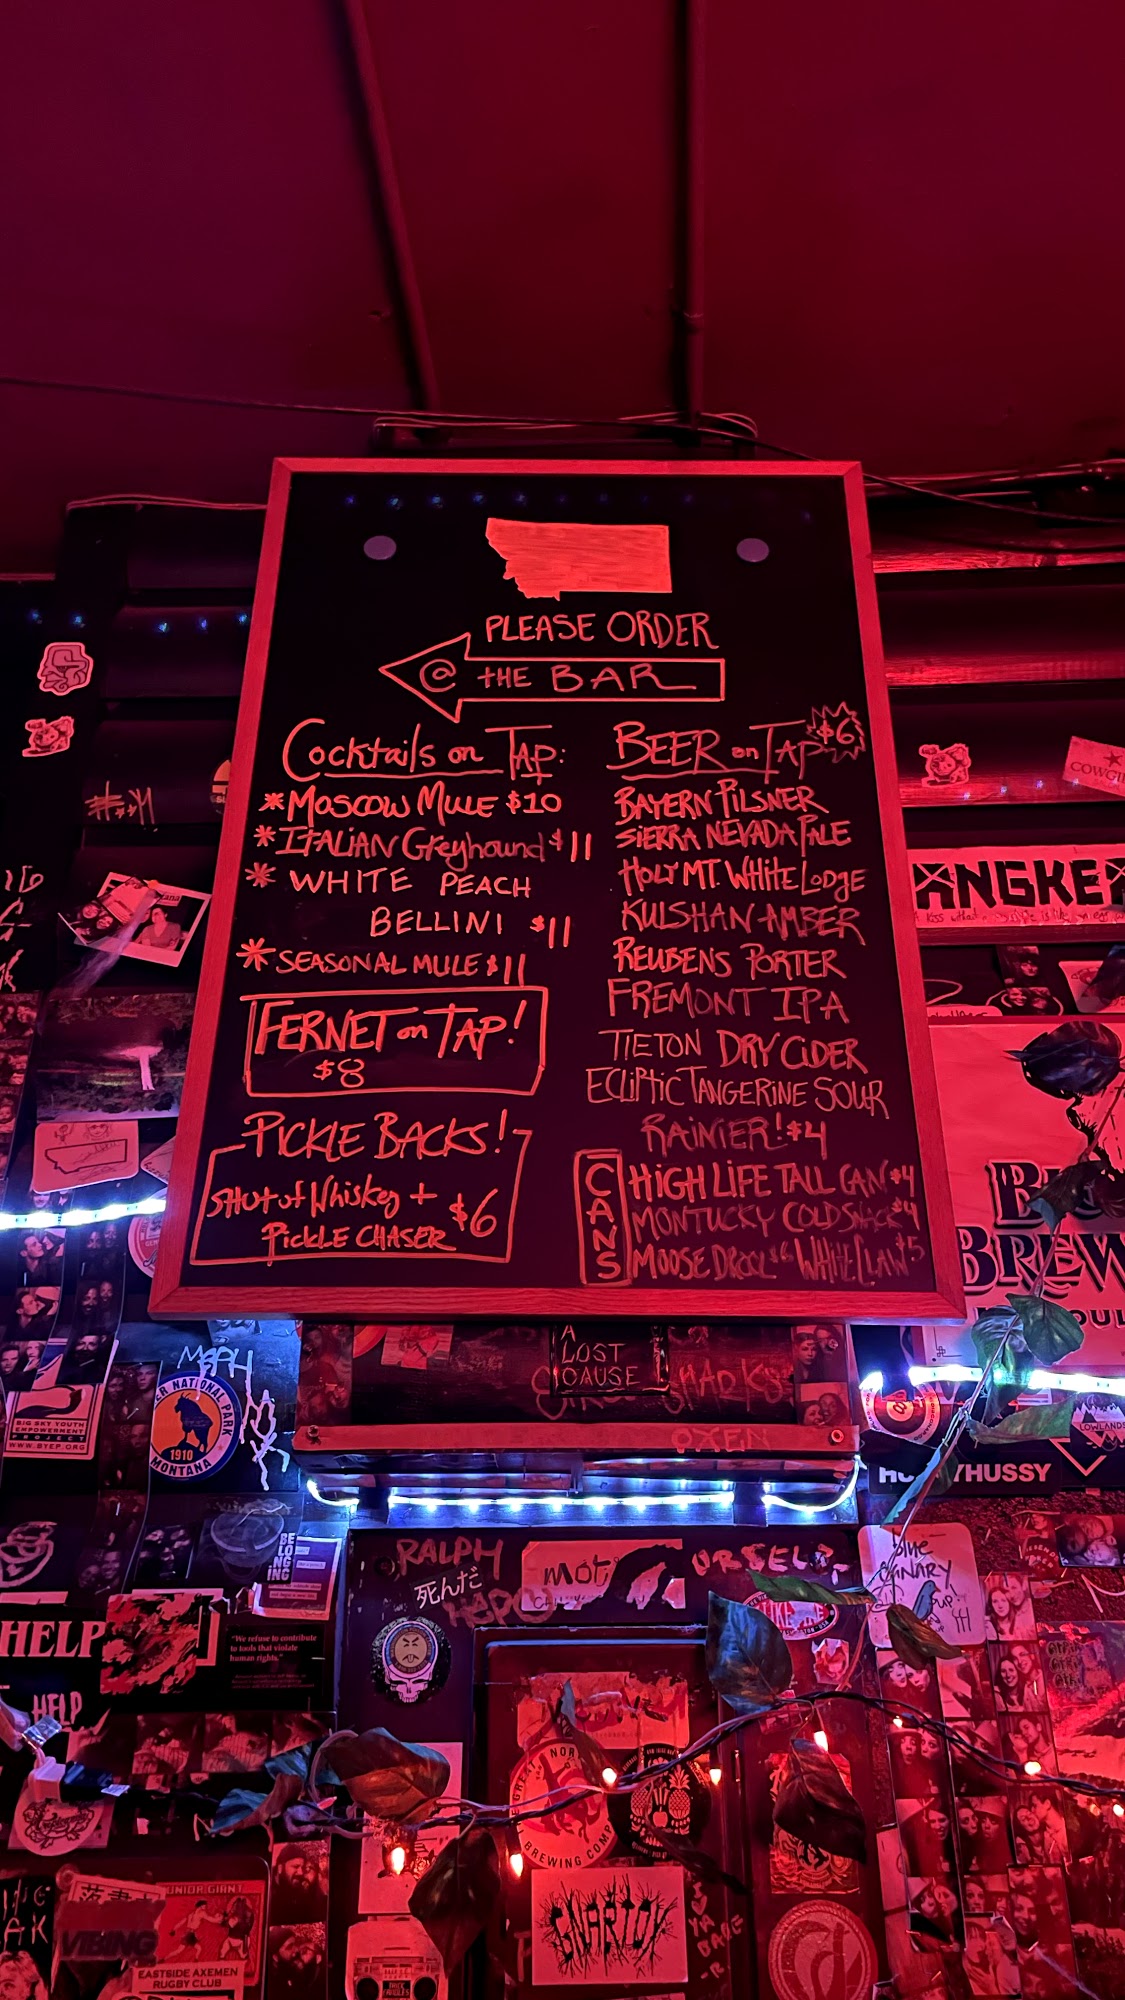 PLEASE ORDER
@ THE BAR
Cocktails on TAP:
* MOSCOW MULE $10
* ITALIAN Greyhound $11
* WHITE PEACH
BELLINI $11
* SEASONAL MULE $11
FERNET on TAP!
$8
PICKLE BACKS!
SHOT of Whiskey +
PICKLE CHASER $6
BEER on TAP $6
BAYERN PILSNER
SIERRA NEVADA PALE
HOLY MT. WHITE LODGE
KULSHAN AMBER
REUBENS PORTER
FREMONT IPA
TIETON DRY CIDER
ECLIPTIC TANGERINE SOUR
RAINIER! $4
CANS
HIGH LIFE TALL CAN $4
MONTUCKY COLD SNACK $4
MOOSE DROOL $6 WHITE CLAW $5
A
LOST
CAUSE
NATIONAL PARK
1910
MONTANA
BIG SKY YOUTH
EMPOWERMENT
PROJECT
WWW.BYEP.ORG
BE
LO
NG
ING
RALPH
死んだ
HELP
HELP
"We refuse to contribute
to tools that violate
human rights."
BREWING COMP
GNARTOX
VIBING
JUNIOR GIANT
EASTSIDE AXEMEN
RUGBY CLUB
COWGI
ANGKE
BREW
YHUSSY
LOWLANDS